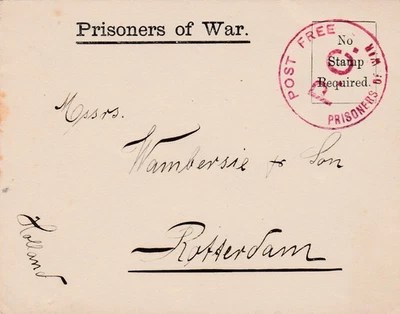 Prisoners of War.
No
Stamp
Required.
POST FREE
P.C.
PRISONERS OF WAR
Messrs.
Wambersie & Son
Rotterdam
Holland